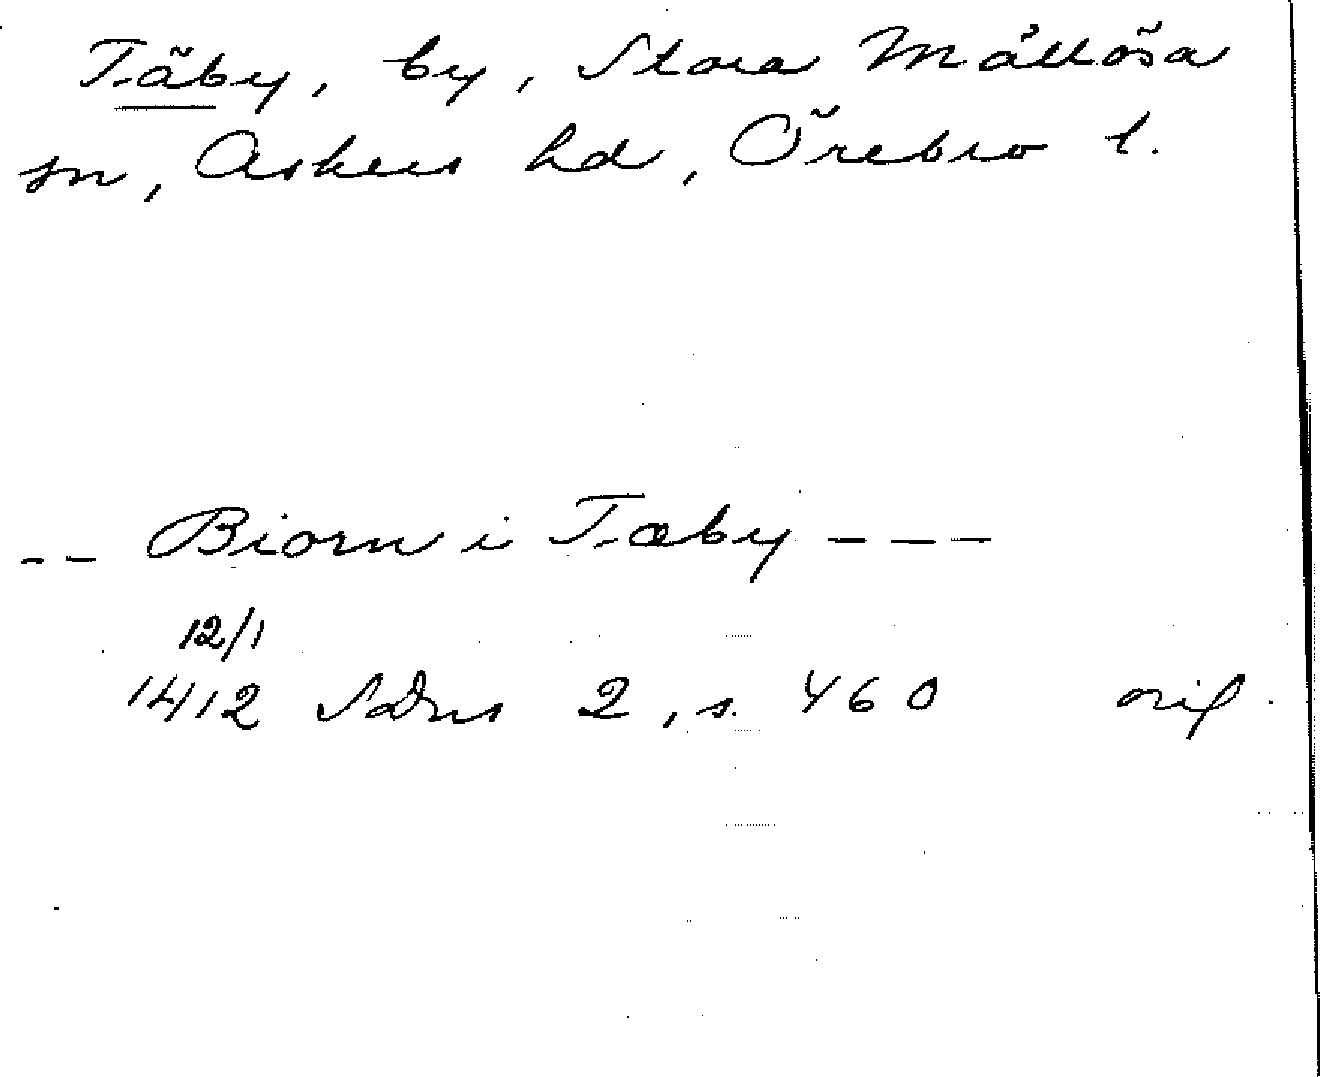 Täby, by, Stora Mällösa
sn, Askers hd, Örebro l.
-- Biorn i Tæby ---
12/1
1412 SDns 2, s. 460 orig.